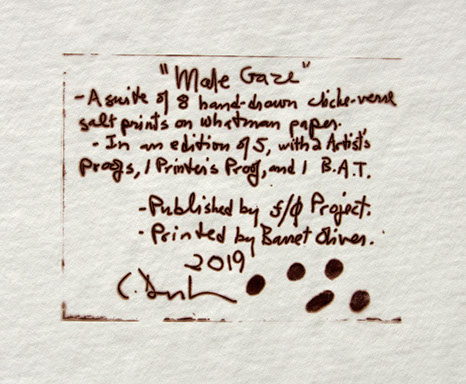 "Male Gaze"
- A suite of 8 hand-drawn cliche-verre
salt prints on whatman paper.
- In an edition of 5, with 2 Artist's
Proofs, 1 Printer's Proof, and 1 B.A.T.
- Published by f/Ø Project.
- Printed by Barret Oliver.
2019